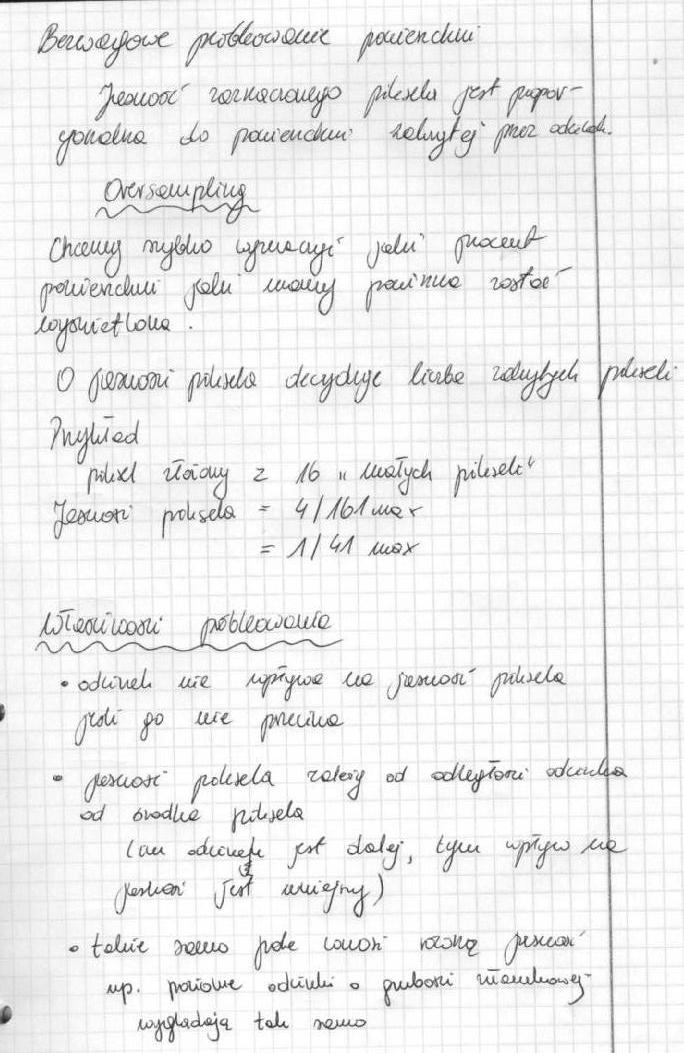 Bezwagowe próbkowanie powierzchni
Jasność zaznaczonego piksela jest propor-
cjonalna do powierzchni zakrytej przez odcinek.
Oversampling
Chcemy szybko wyznaczyć jaki procent
powierzchni jaki mamy powinna zostać
wyświetlona.
O jasności piksela decyduje liczba zakrytych pikseli
Przykład
piksel złożony z 16 „małych pikseli"
Jasność piksela = 4/16 I max
= 1/4 I max
Właściwości próbkowania
• odcinek nie wpływa na jasność piksela
jeśli go nie przecina
• jasność piksela zależy od odległości odcinka
od środka piksela
(im odcinek jest dalej, tym wpływ na
jasność jest mniejszy)
• takie samo pole wnosi równą jasność
np. poziome odcinki o grubości
wyglądają tak samo